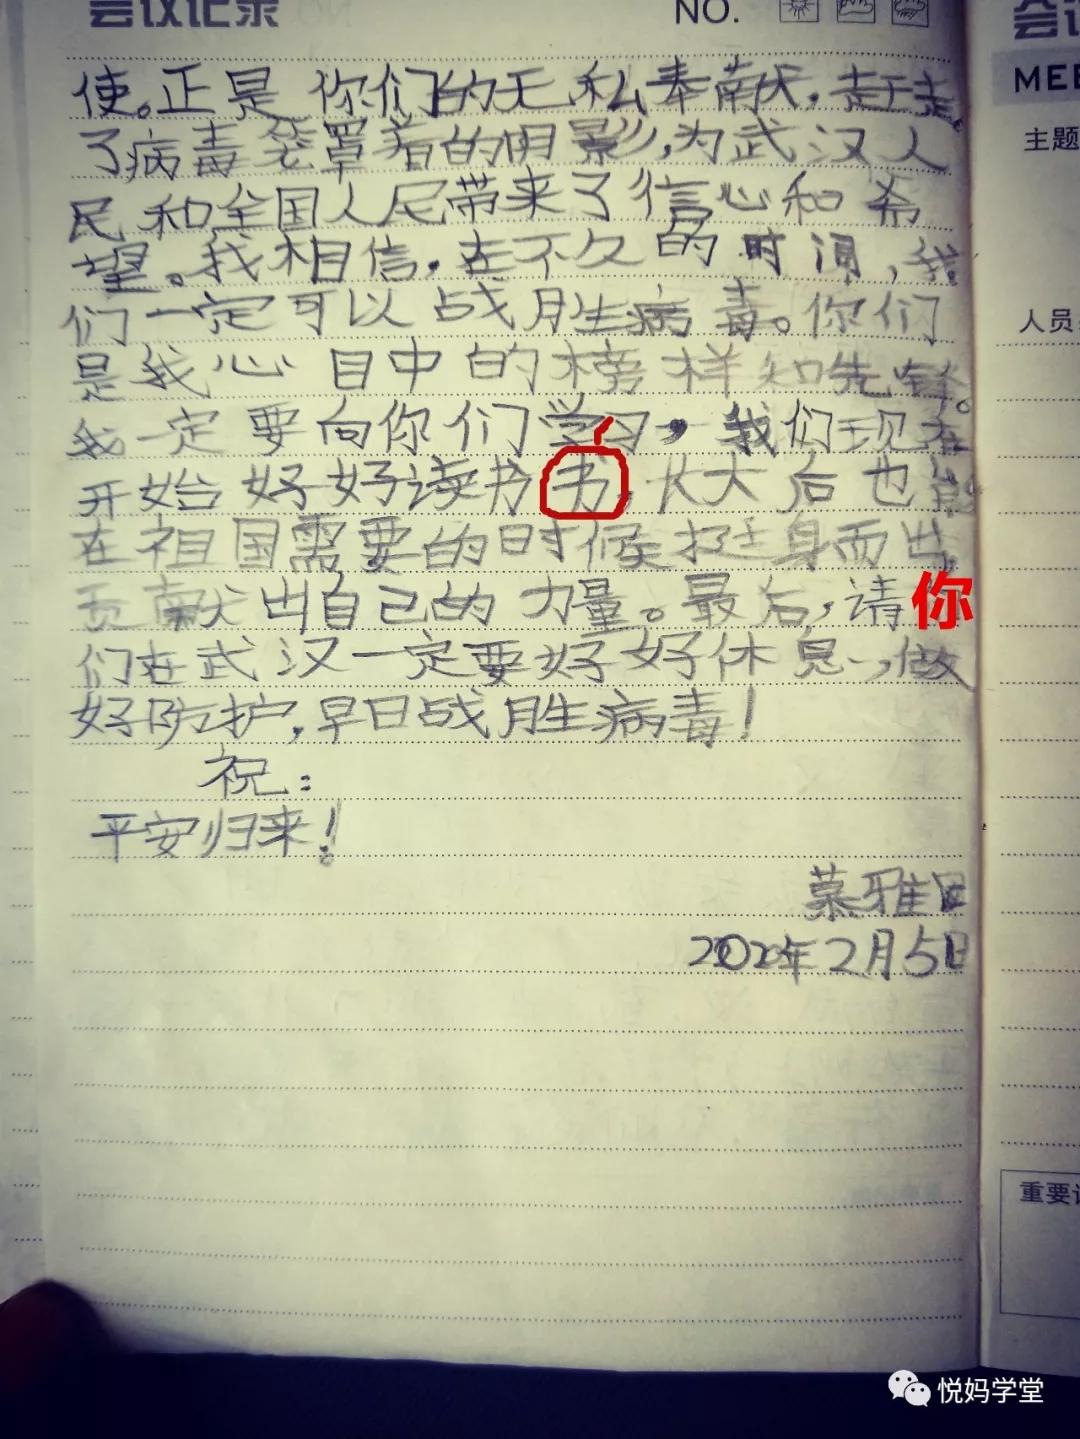 会议记录
NO.
使。正是你们的无私奉献，赶走
了病毒笼罩着的阴影，为武汉人
民和全国人民带来了信心和希
望。我相信，在不久的时间，我
们一定可以战胜病毒。你们
是我心目中的榜样和先锋。
我一定要向你们学习，我们现在
开始好好读书书，长大后也能
在祖国需要的时候挺身而出，
贡献出自己的力量。最后，请你
们在武汉一定要好好休息，做
好防护，早日战胜病毒！
祝：
平安归来！
慕雅
2020年2月5日
会议
MEE
主题
人员
重要
悦妈学堂